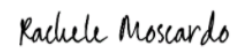 Rachele Moscardo